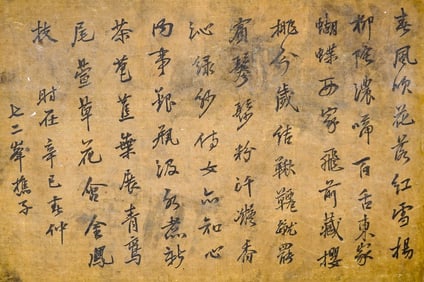 春風吹花落紅雪楊
柳陰濃啼百舌東家
蝴蝶西家飛前歲櫻
桃今歲結鞦韆蹴罷
鬢鬖髿粉汗凝香
沁綠紗侍女亦知心
內事銀瓶汲水煮新
茶芭蕉葉展青鸞
尾萱草花含金鳳
枝 時在辛巳仲
七二峯樵子